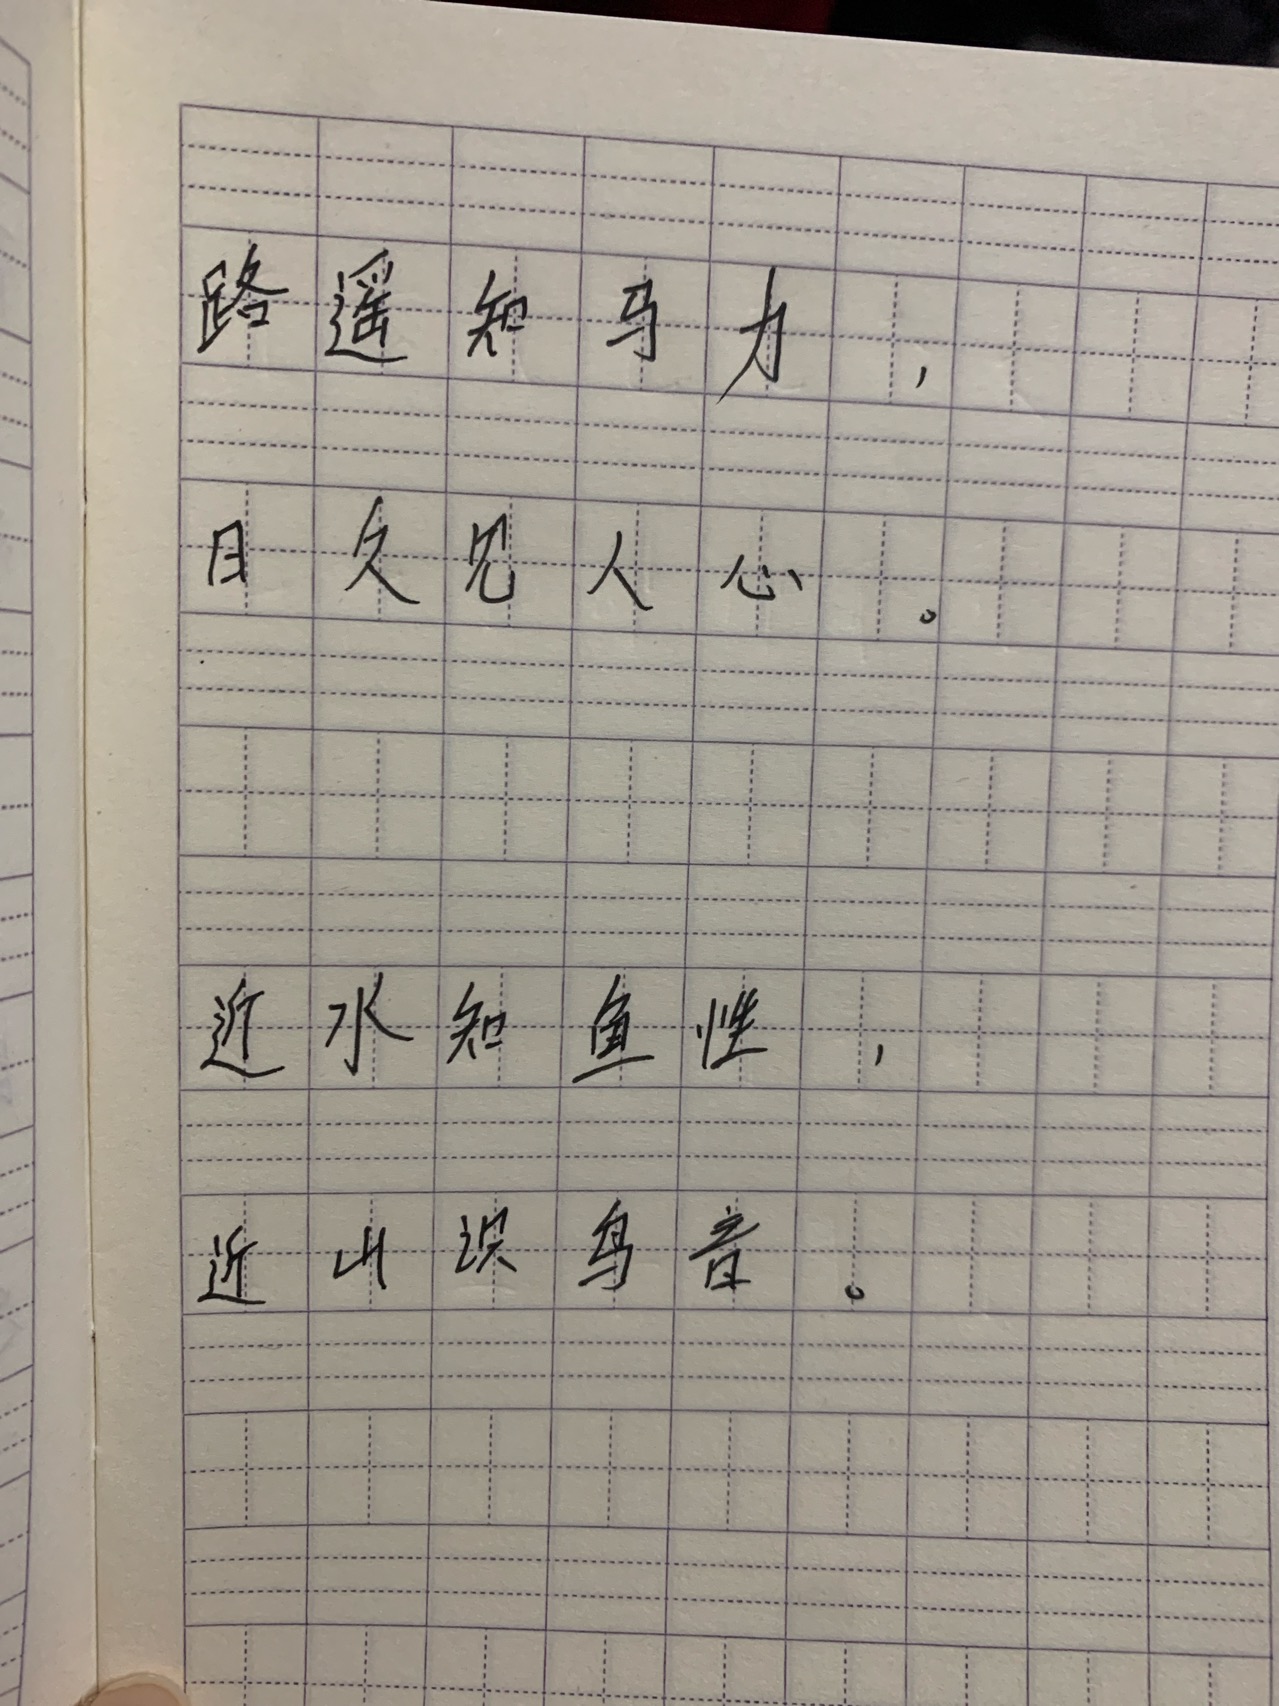 路遥知马力，
日久见人心。
近水知鱼性，
近山识鸟音。